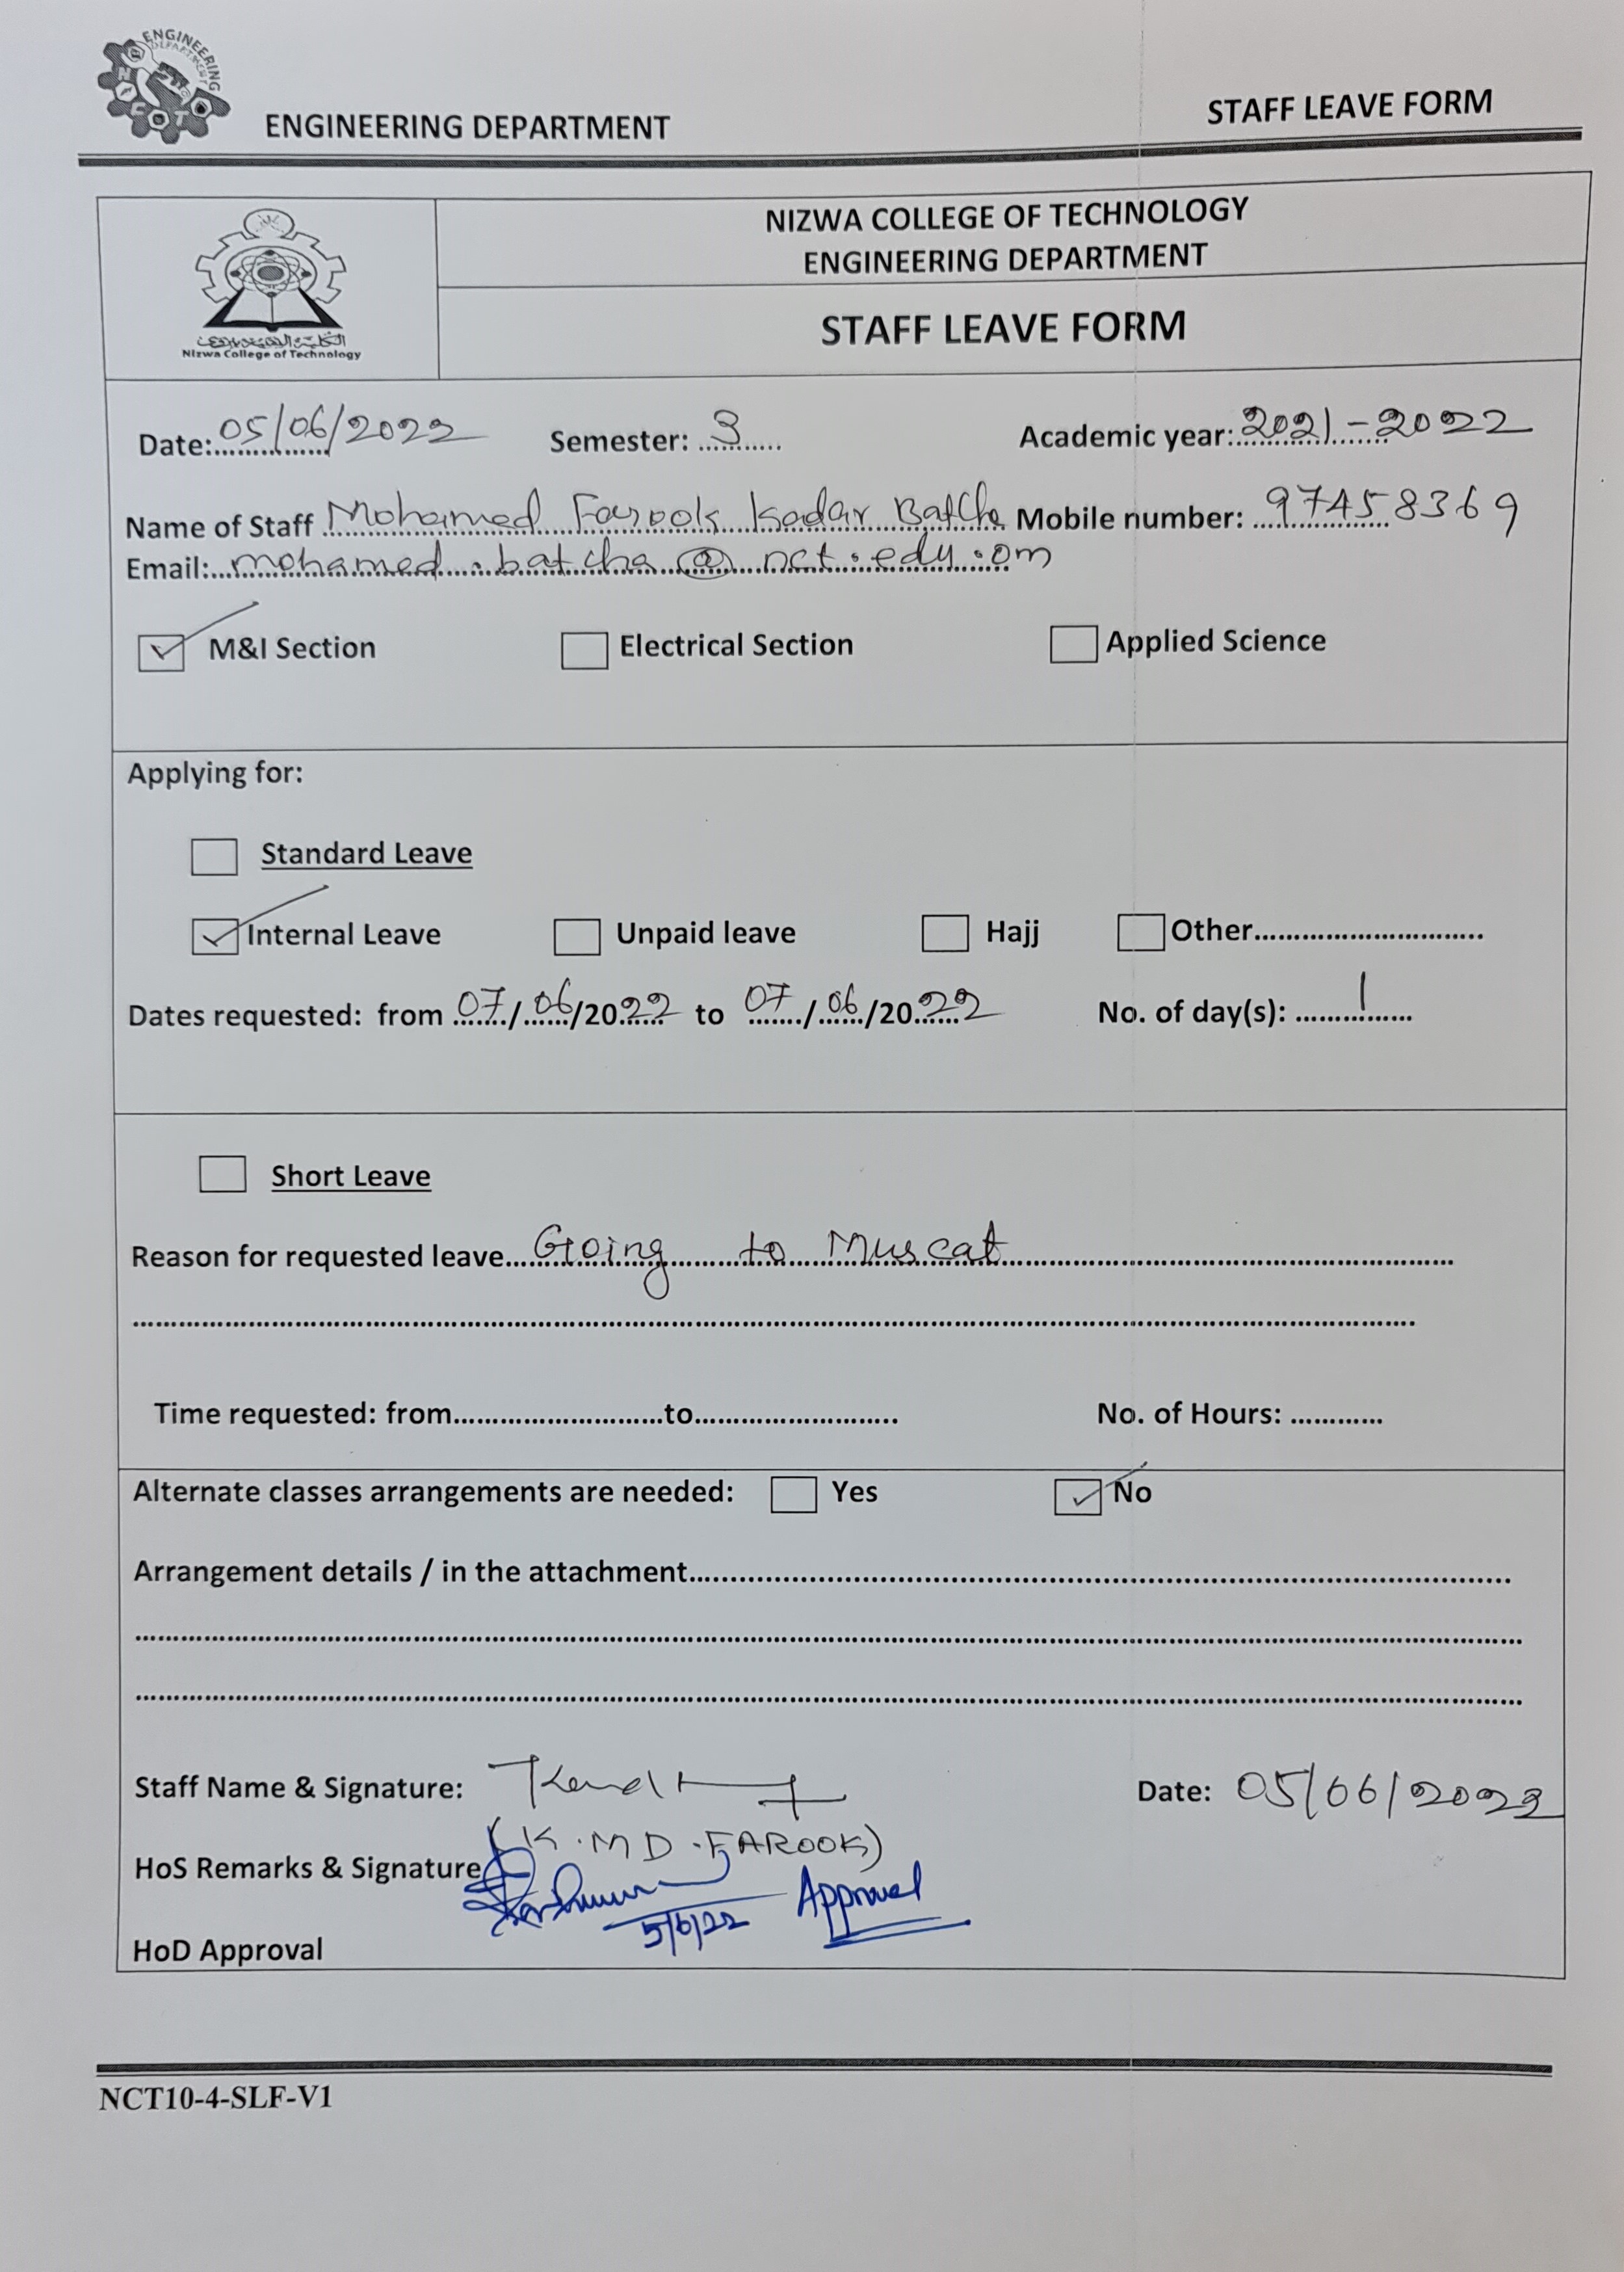 ENGINEERING DEPARTMENT
ENGINEERING DEPARTMENT STAFF LEAVE FORM
NIZWA COLLEGE OF TECHNOLOGY
ENGINEERING DEPARTMENT
STAFF LEAVE FORM
Nizwa College of Technology
Date: 05/06/2022 Semester: 3 Academic year: 2021-2022
Name of Staff Mohamed Farook Kadar Batcha Mobile number: 97458369
Email: mohamed.batcha@nct.edu.om
M&I Section Electrical Section Applied Science
Applying for:
Standard Leave
Internal Leave Unpaid leave Hajj Other...............................
Dates requested: from 07/06/2022 to 07/06/2022 No. of day(s): 1
Short Leave
Reason for requested leave Going to Muscat
Time requested: from............................to........................... No. of Hours: ............
Alternate classes arrangements are needed: Yes No
Arrangement details / in the attachment
Staff Name & Signature: Date: 05/06/2022
(K.MD.FAROOK)
HoS Remarks & Signature
5/6/22 Approved
HoD Approval
NCT10-4-SLF-V1